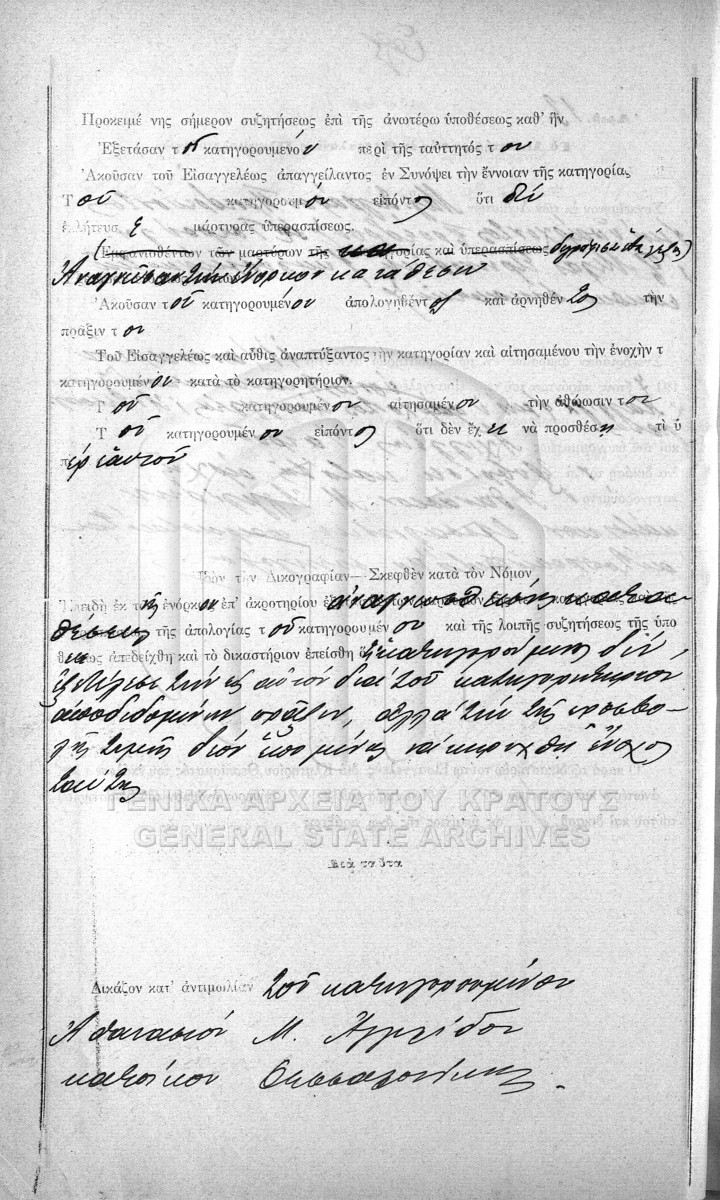 Προκειμέ νης σήμερον συζητήσεως ἐπὶ τῆς ἀνωτέρω ὑποθέσεως καθ' ἣν
Ἐξετάσαν τοῦ κατηγορουμένου περὶ τῆς ταὐττητός του
Ἀκοῦσαν τοῦ Εἰσαγγελέως ἀπαγγείλαντος ἐν Συνόψει τὴν ἔννοιαν τῆς κατηγορίας
Τοῦ κατηγορουμένου εἰπόντος ὅτι δέν
ἐκλήτευσε μάρτυρας ὑπερασπίσεως.
(Ἐμφανισθέντων τῶν μαρτύρων τῆς κατηγορίας καὶ ὑπερασπίσεως
τὴν ἔνορκον κατάθεσιν
Ἀκοῦσαν τοῦ κατηγορουμένου ἀπολογηθέντος καὶ ἀρνηθέντος τὴν
πρᾶξιν του
Τοῦ Εἰσαγγελέως καὶ αὖθις ἀναπτύξαντος τὴν κατηγορίαν καὶ αἰτησαμένου τὴν ἐνοχὴν τ
κατηγορουμένου κατὰ τὸ κατηγορητήριον.
Τοῦ κατηγορουμένου αἰτησαμένου τὴν ἀθώωσίν του
Τοῦ κατηγορουμένου εἰπόντος ὅτι δὲν ἔχει νὰ προσθέσῃ τι ὑ
πὲρ ἑαυτοῦ
Ἰδὸν τὴν Δικογραφίαν — Σκεφθὲν κατὰ τὸν Νόμον
Ἐπειδὴ ἐκ τῆς ἐνόρκου ἐπ' ἀκροτηρίου ἀναγνωσθείσης κατα-
θέσεως τῆς ἀπολογίας τοῦ κατηγορουμένου καὶ τῆς λοιπῆς συζητήσεως τῆς ὑπο
θέσεως ἀπεδείχθη καὶ τὸ δικαστήριον ἐπείσθη ὅτι ὁ κατηγορούμενος δέν
ἐξετέλεσε τὴν εἰς αὐτὸν διὰ τοῦ κατηγορητηρίου
ἀποδιδομένην πρᾶξιν, ἀλλὰ τὴν τῆς προσβο-
λῆς τιμῆς διὸ ἑπομένως νὰ κηρυχθῇ ἔνοχος
ταύτης
ΓΕΝΙΚΑ ΑΡΧΕΙΑ ΤΟΥ ΚΡΑΤΟΥΣ
GENERAL STATE ARCHIVES
Διὰ ταῦτα
Δικάζον κατ' ἀντιμωλίαν τοῦ κατηγορουμένου
Ἀθανασίου Μ.
κατοίκου Θεσσαλονίκης.